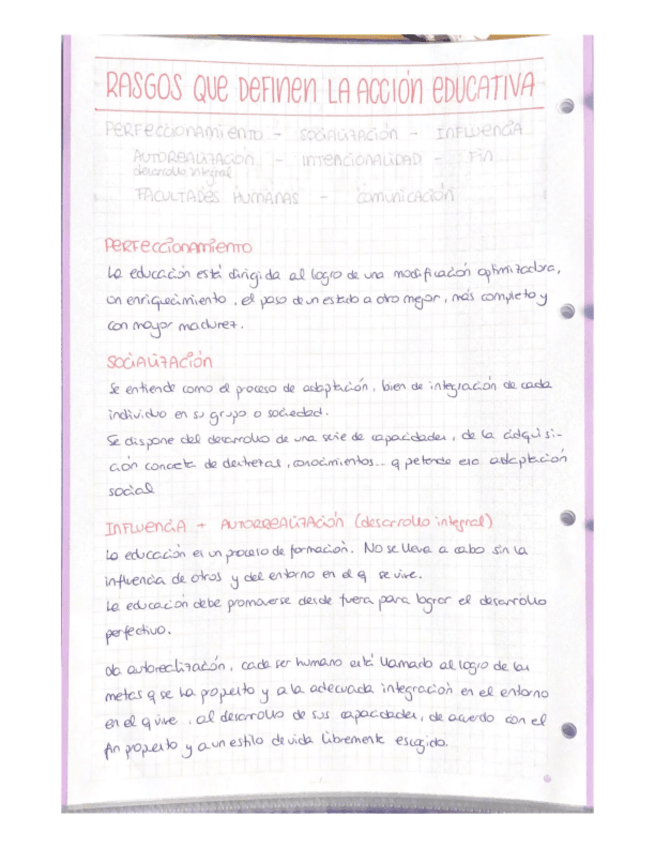 RASGOS QUE DEFINEN LA ACCIÓN EDUCATIVA
PERFECCIONAMIENTO - SOCIALIZACIÓN - INFLUENCIA
AUTOREALIZACIÓN - INTENCIONALIDAD - FIN
desarrollo integral
FACULTADES HUMANAS - COMUNICACIÓN
PERFECCIONAMIENTO
La educación está dirigida al logro de una modificación optimizadora,
un enriquecimiento, el paso de un estado a otro mejor, más completo y
con mayor madurez.
SOCIALIZACIÓN
Se entiende como el proceso de adaptación, bien de integración de cada
individuo en su grupo o sociedad.
Se dispone del desarrollo de una serie de capacidades, de la adquisi-
ción concreta de destrezas, conocimientos... q petende esa adaptación
social
INFLUENCIA + AUTORREALIZACIÓN (desarrollo integral)
La educación es un proceso de formación. No se lleva a cabo sin la
influencia de otros y del entorno en el q se vive.
La educación debe promoverse desde fuera para lograr el desarrollo
perfectivo.
autorealización, cada ser humano está llamado al logro de las
metas q se ha propuesto y a la adecuada integración en el entorno
en el q vive, al desarrollo de sus capacidades, de acuerdo con el
fin propuesto y a un estilo de vida libremente escogido.